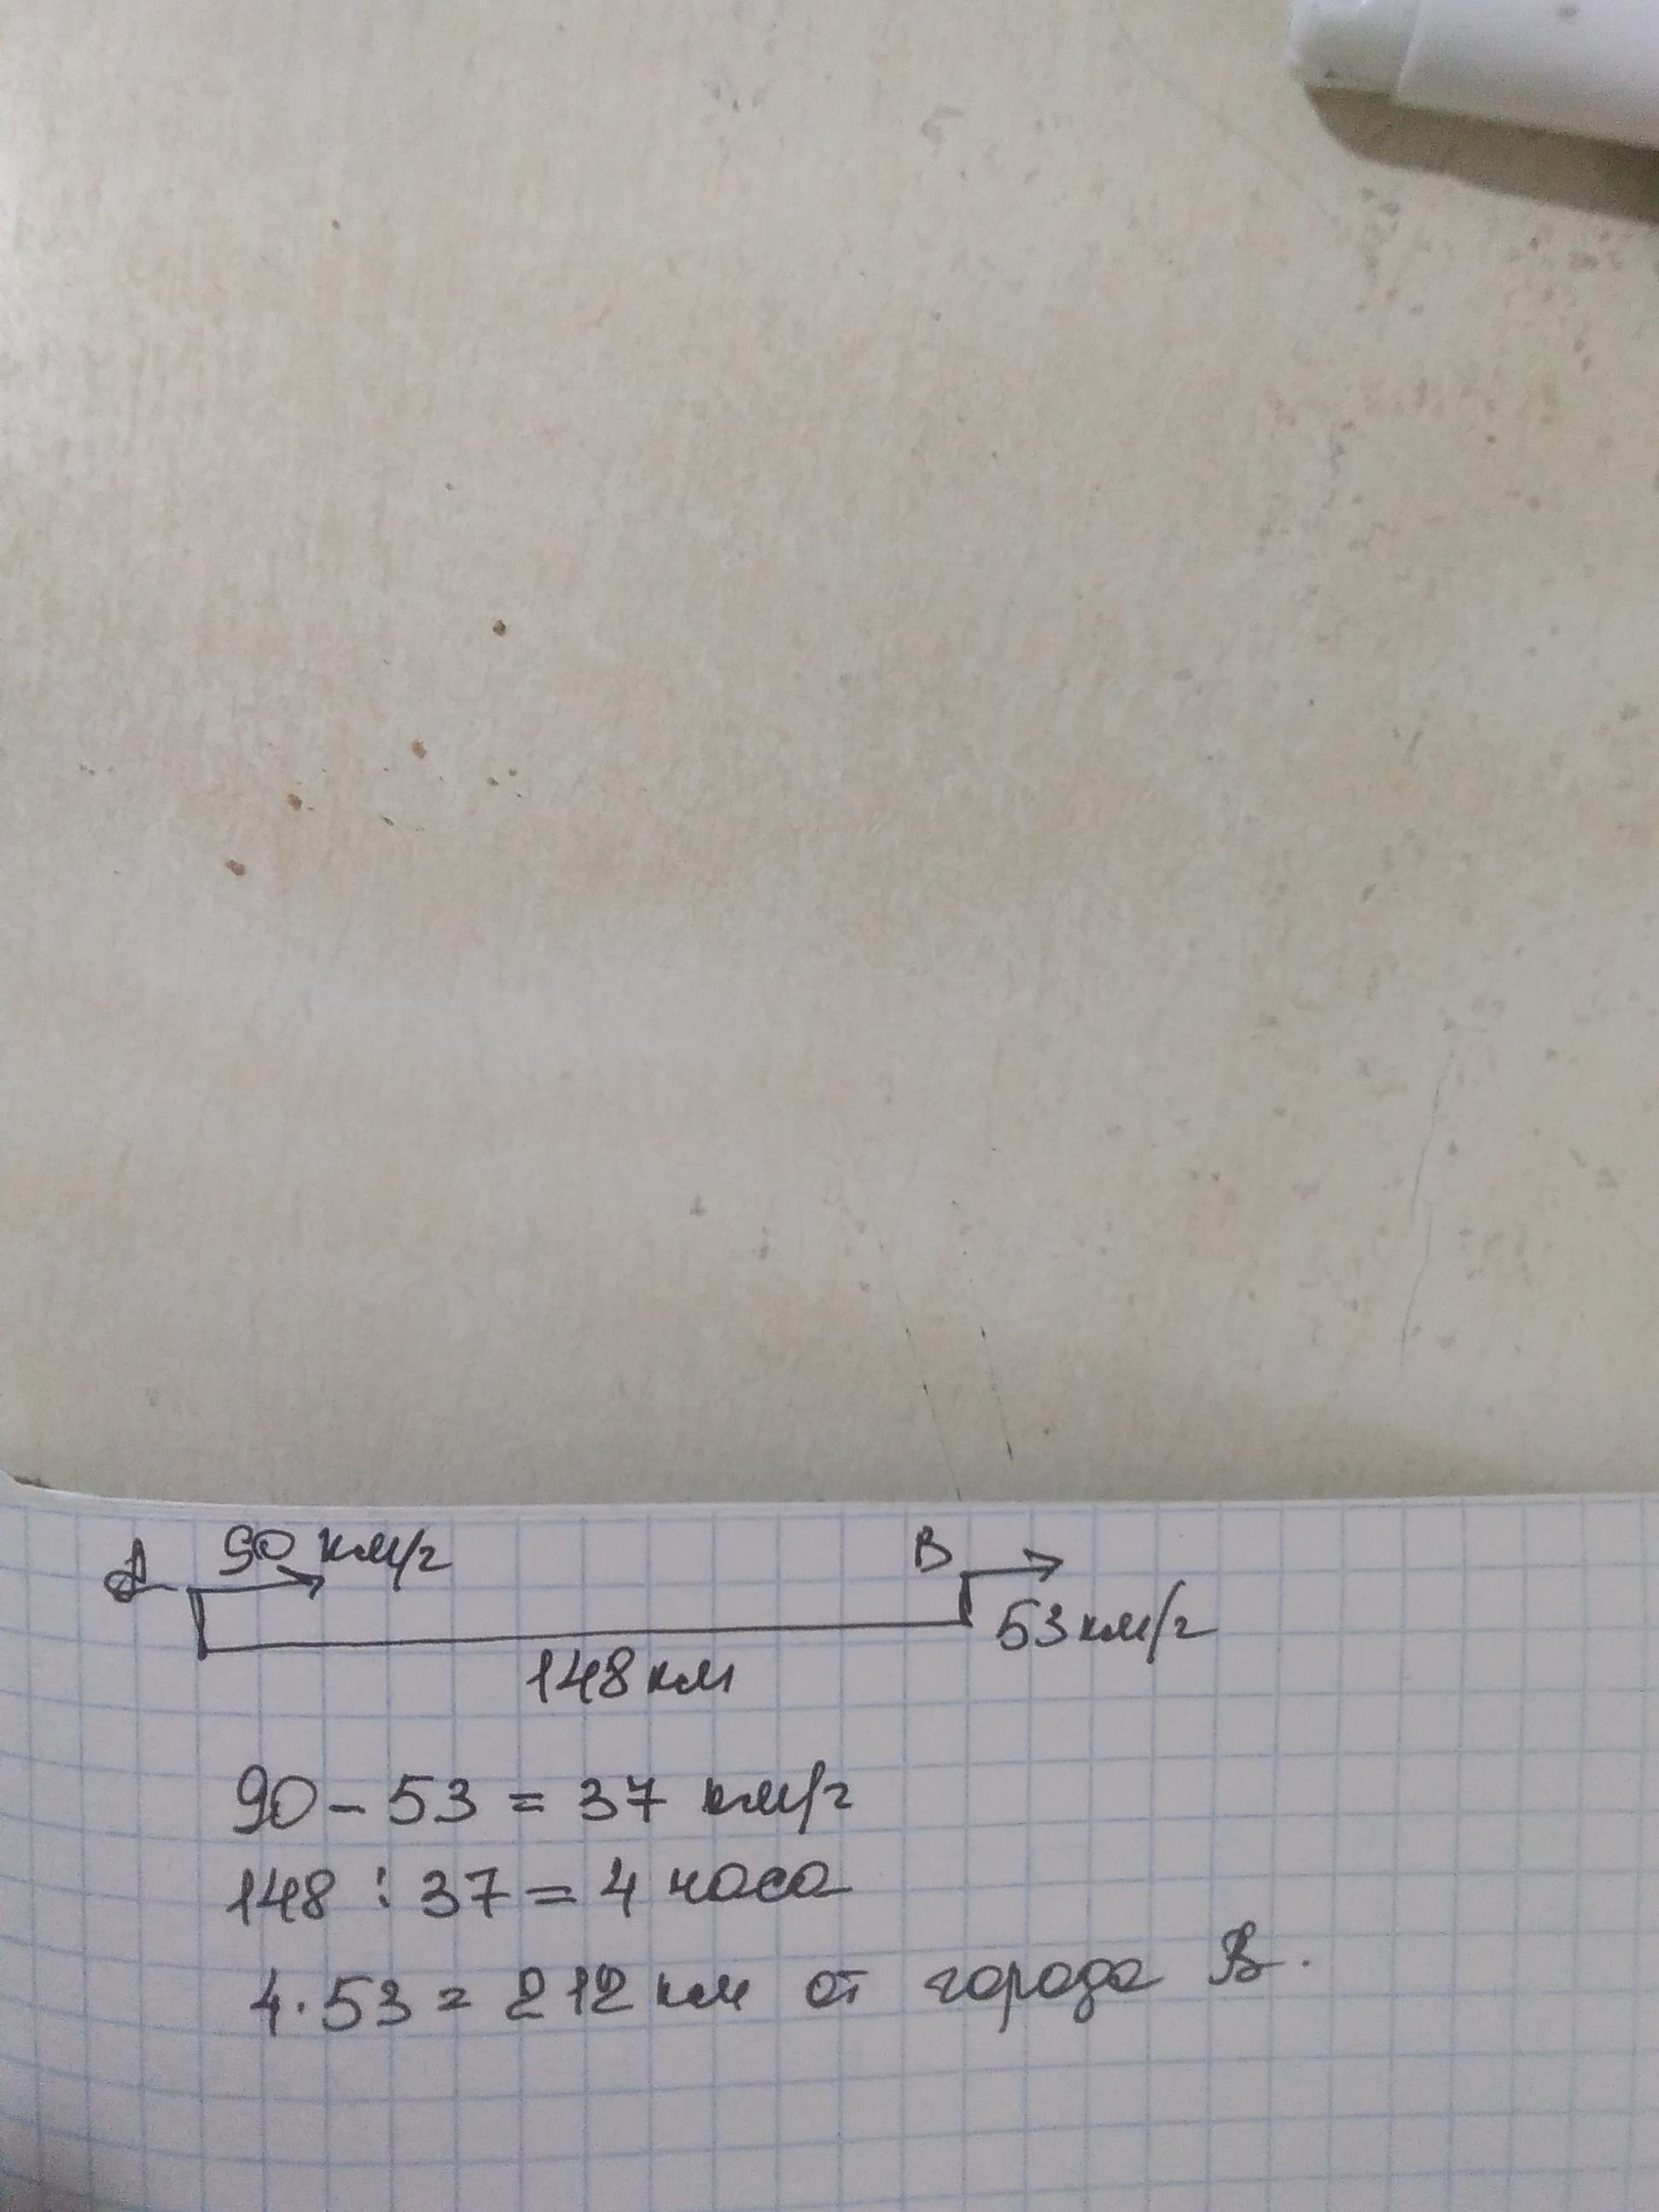 A 90 км/г B
53 км/г
148 км
90 - 53 = 37 км/г
148 : 37 = 4 часа
4 · 53 = 212 км от города В.